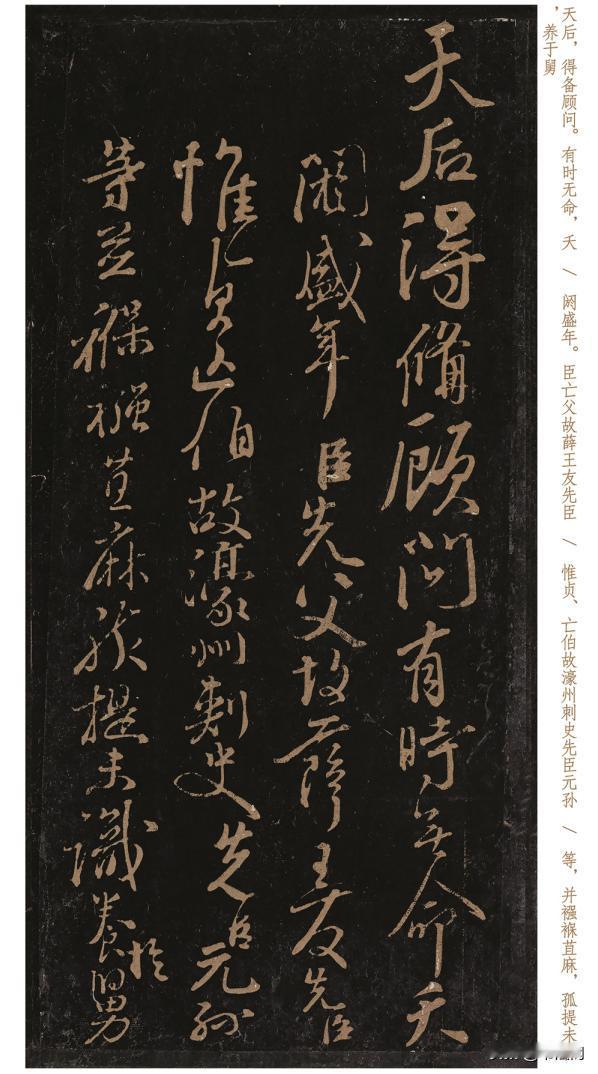 天后，得备顾问。有时无命，夭 \ 阏盛年。臣亡父故薛王友先臣 \ 惟贞、亡伯故濠州刺史先臣元孙 \ 等，并襁褓苴麻，孤提未
，养于舅
天后得備顧問有時無命夭
閼盛年臣先父故薛王友先臣
惟貞亡伯故濠州刺史先臣元孫
等並褓襁苴麻孤提未識養於舅